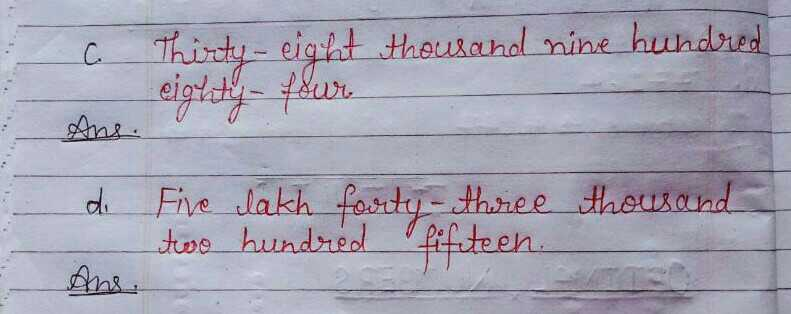 c. Thirty-eight thousand nine hundred
eighty-four.
Ans.
d. Five lakh forty-three thousand
two hundred fifteen.
Ans.